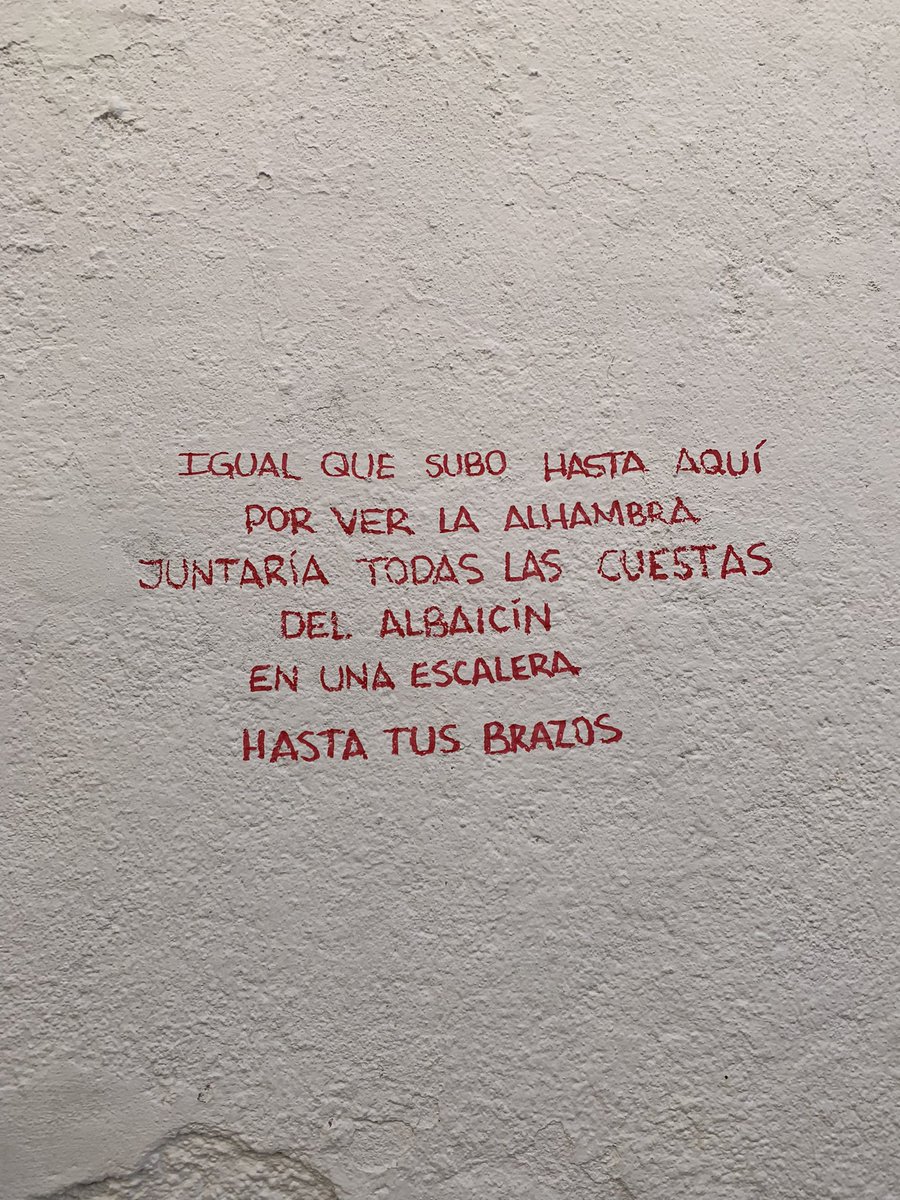 IGUAL QUE SUBO HASTA AQUÍ
POR VER LA ALHAMBRA
JUNTARÍA TODAS LAS CUESTAS
DEL ALBAICÍN
EN UNA ESCALERA
HASTA TUS BRAZOS